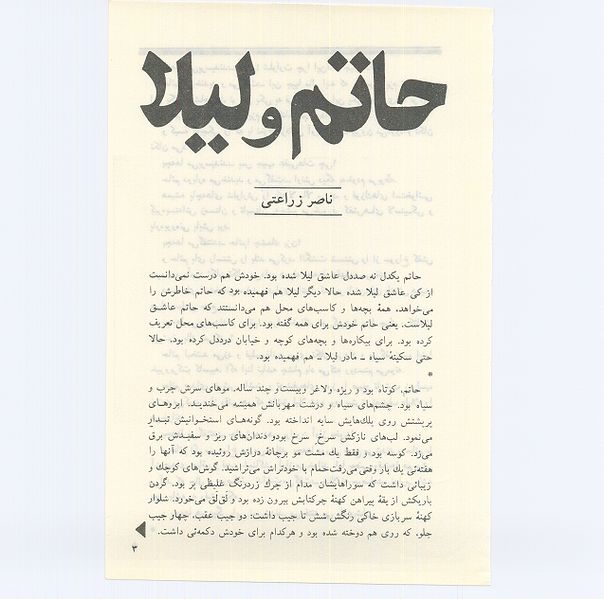 حاتم و لیلا
ناصر زراعتی
حاتم یکدل نه صددل عاشق لیلا شده بود. خودش هم درست نمی‌دانست
از کی عاشق لیلا شده حالا دیگر لیلا هم فهمیده بود که حاتم خاطرش را
می‌خواهد. همهٔ بچه‌ها و کاسب‌های محل هم می‌دانستند که حاتم عاشق
لیلاست. یعنی حاتم خودش برای همه گفته بود. برای کاسب‌های محل تعریف
کرده بود. برای بیکاره‌ها و بچه‌های کوچه و خیابان درددل کرده بود. حالا
حتی سکینهٔ سیاه ـ مادر لیلا ـ هم فهمیده بود.
*
حاتم، کوتاه بود و ریزه ولاغر وبیست‌و چند ساله. موهای سرش چرب و
سیاه بود. چشم‌های سیاه و درشت مهربانش همیشه می‌خندیـد. ابروهـای
پرپشتش روی پلك‌هایش سایه انداخته بود. گونه‌هـای استخـوانیش تبـدار
می‌نمود. لب‌های نازکش سرخ سرخ بودو دندان‌های ریز و سفیـدش برق
می‌زد. کوسه بود و فقط یك مشت مو برچانهٔ درازش روئیده بود که آنها را
هفته‌ئی یك بار وقتی می‌رفت‌حمام با خودتراش می‌تراشید. گوش‌های کوچك و
زیبائی داشت که سوراهایشان مدام از چرك زردرنگ غلیظی پر بود. گردن
باریکش از یقهٔ پیراهن کهنهٔ چرکتابش بیرون زده بود و لق‌لق می‌خورد. شلوار
کهنهٔ سربازی خاکی رنگش شش تا جیب داشت: دو جیب عقب، چهار جیب
جلو، که روی هم دوخته شده بود و هرکدام برای خودش دکمه‌ئی داشت.
۳